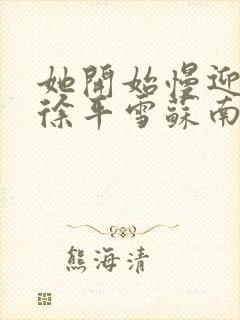 她開始慢迎
徐平雪蘇南
熊海清